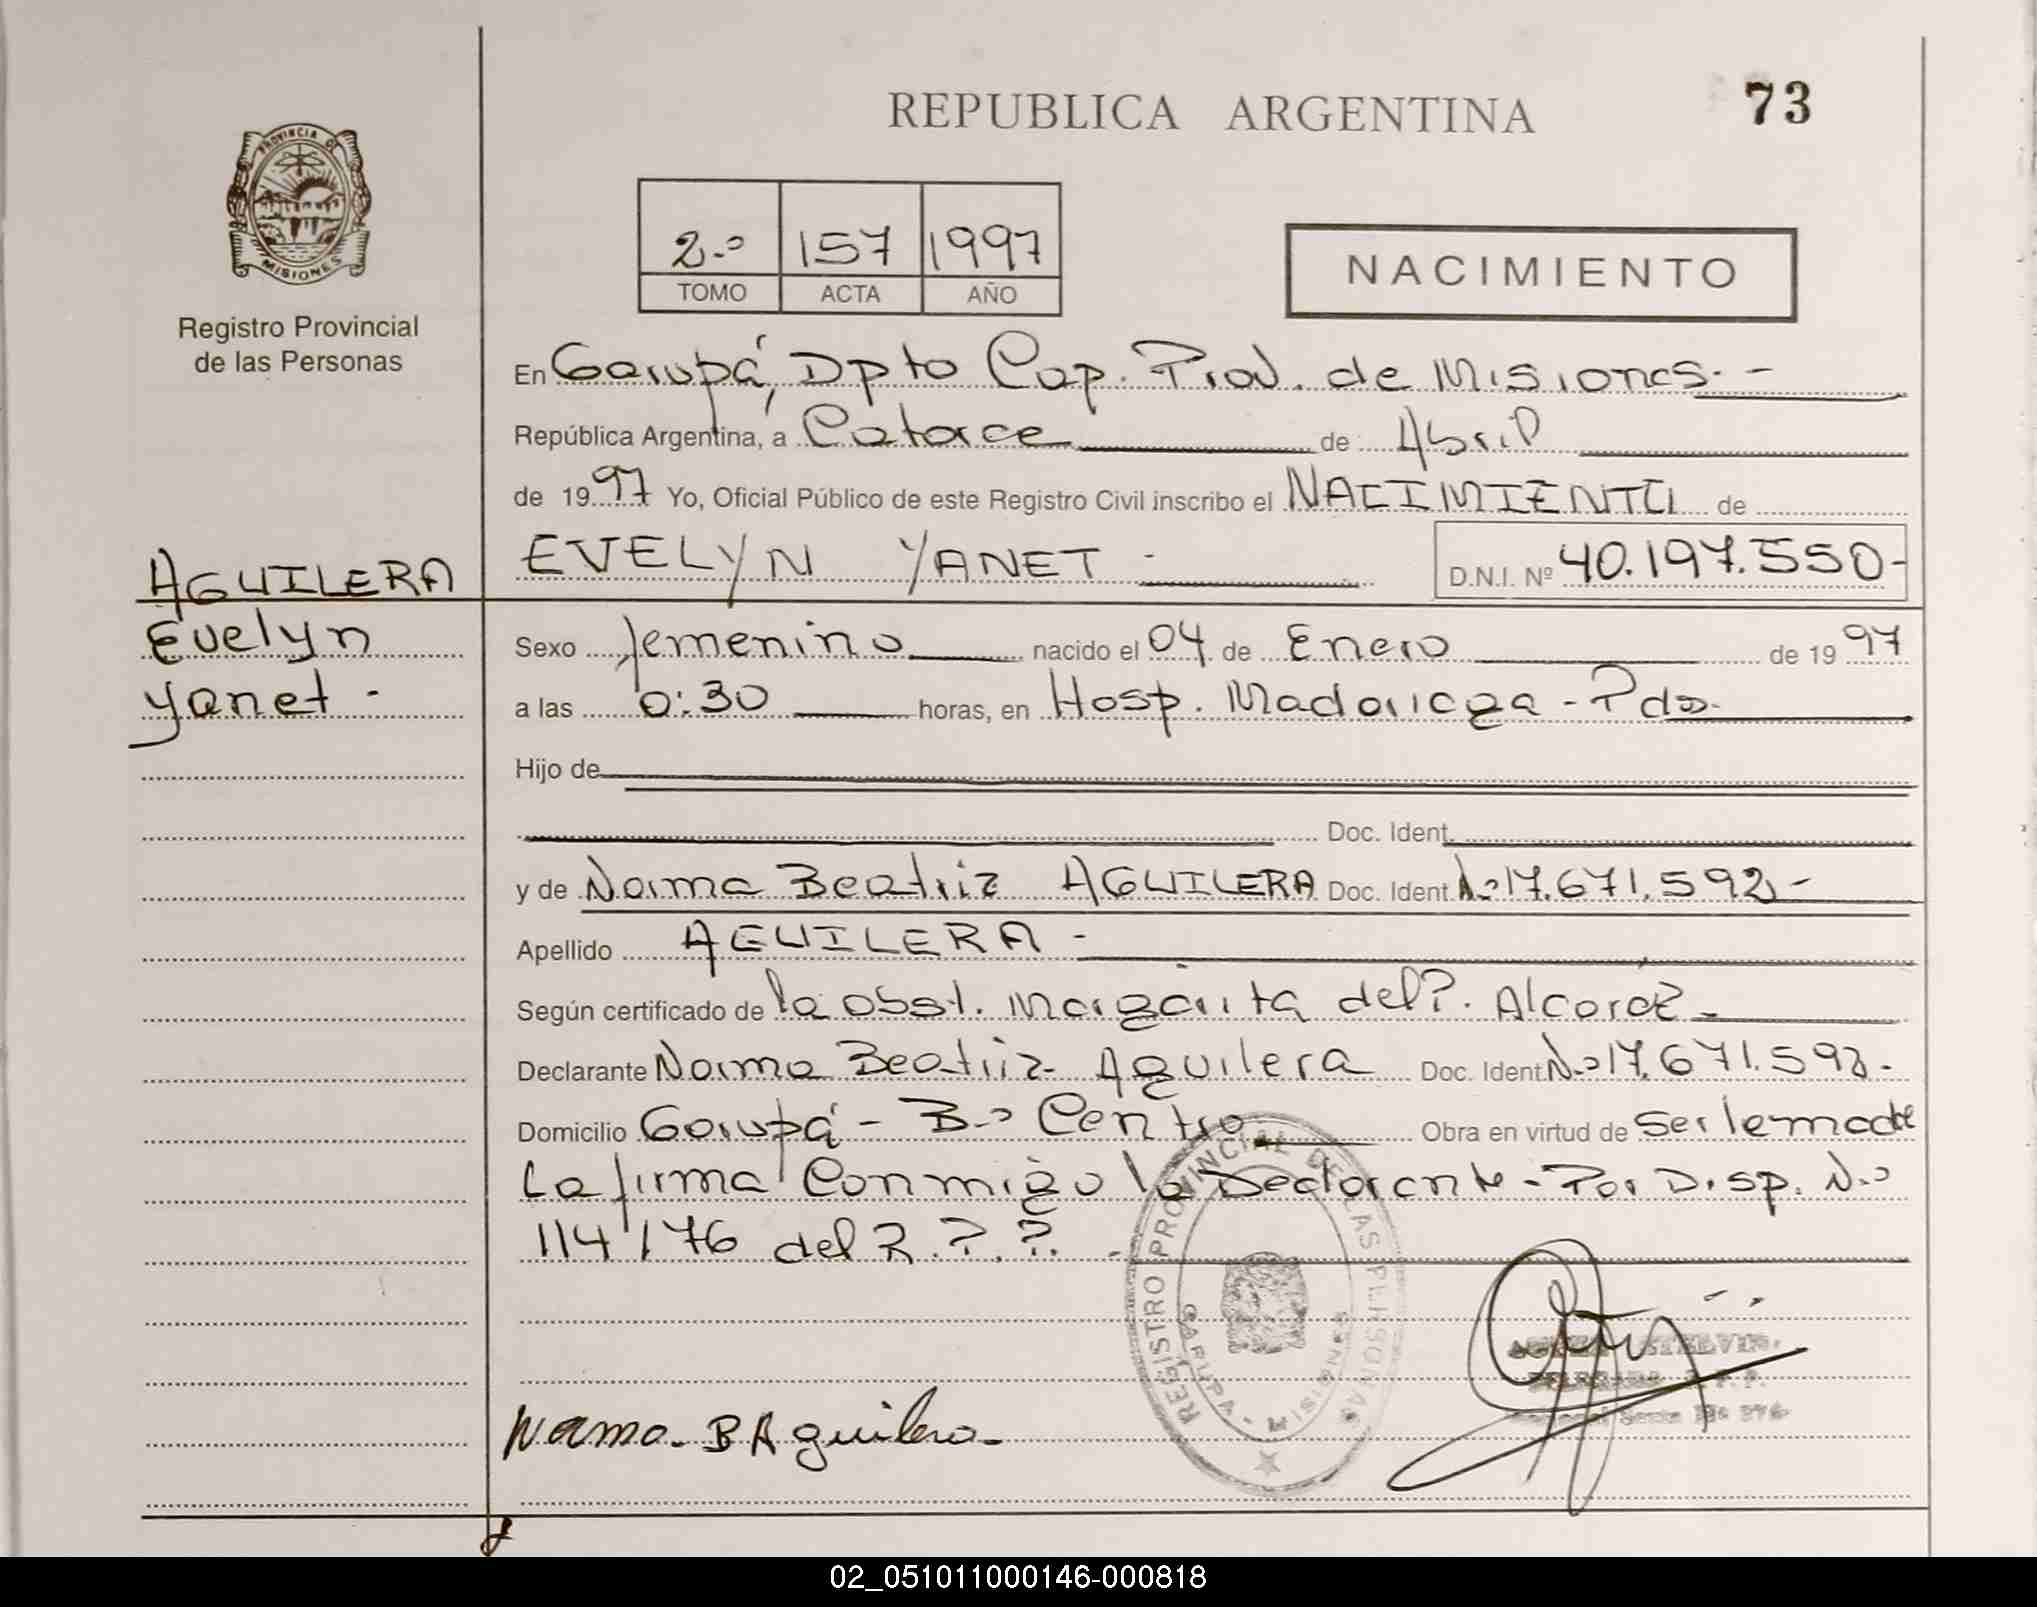 REPUBLICA ARGENTINA
73
PROVINCIA DE
MISIONES
Registro Provincial
de las Personas
2.º 157 1997
TOMO ACTA AÑO
NACIMIENTO
En Garupá, Dpto Cap. Prov. de Misiones.-
República Argentina, a Catorce de Abril
de 1997 Yo, Oficial Público de este Registro Civil inscribo el NACIMIENTO de
EVELYN YANET - D.N.I. Nº 40.197.550-
AGUILERA
Evelyn
Yanet -
Sexo femenino nacido el 04 de Enero de 1997
a las 0:30 horas, en Hosp. Madariaga - Pdas.
Hijo de
Doc. Ident.
y de Norma Beatriz AGUILERA Doc. Ident. Nº 17.671.592-
Apellido AGUILERA -
Según certificado de la obst. Margarita del P. Alcaráz -
Declarante Norma Beatriz Aguilera Doc. Ident. Nº 17.671.592.
Domicilio Garupá - Bº Centro Obra en virtud de Ser la madre
La firma Conmigo la Declarante - Por Disp. Nº
114/76 del R.P.P.
REGISTRO PROVINCIAL DE LAS PERSONAS
GARUPA - MISIONES
Norma B Aguilera
02_051011000146-000818